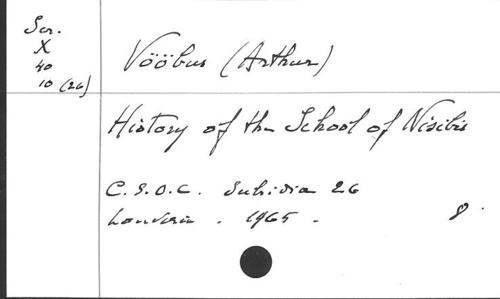 Scr.
X
40
10 (26)
Vööbus (Arthur)
History of the School of Nisibis
C.S.O.C. Subsidia 26
Louvain . 1965 .
8.